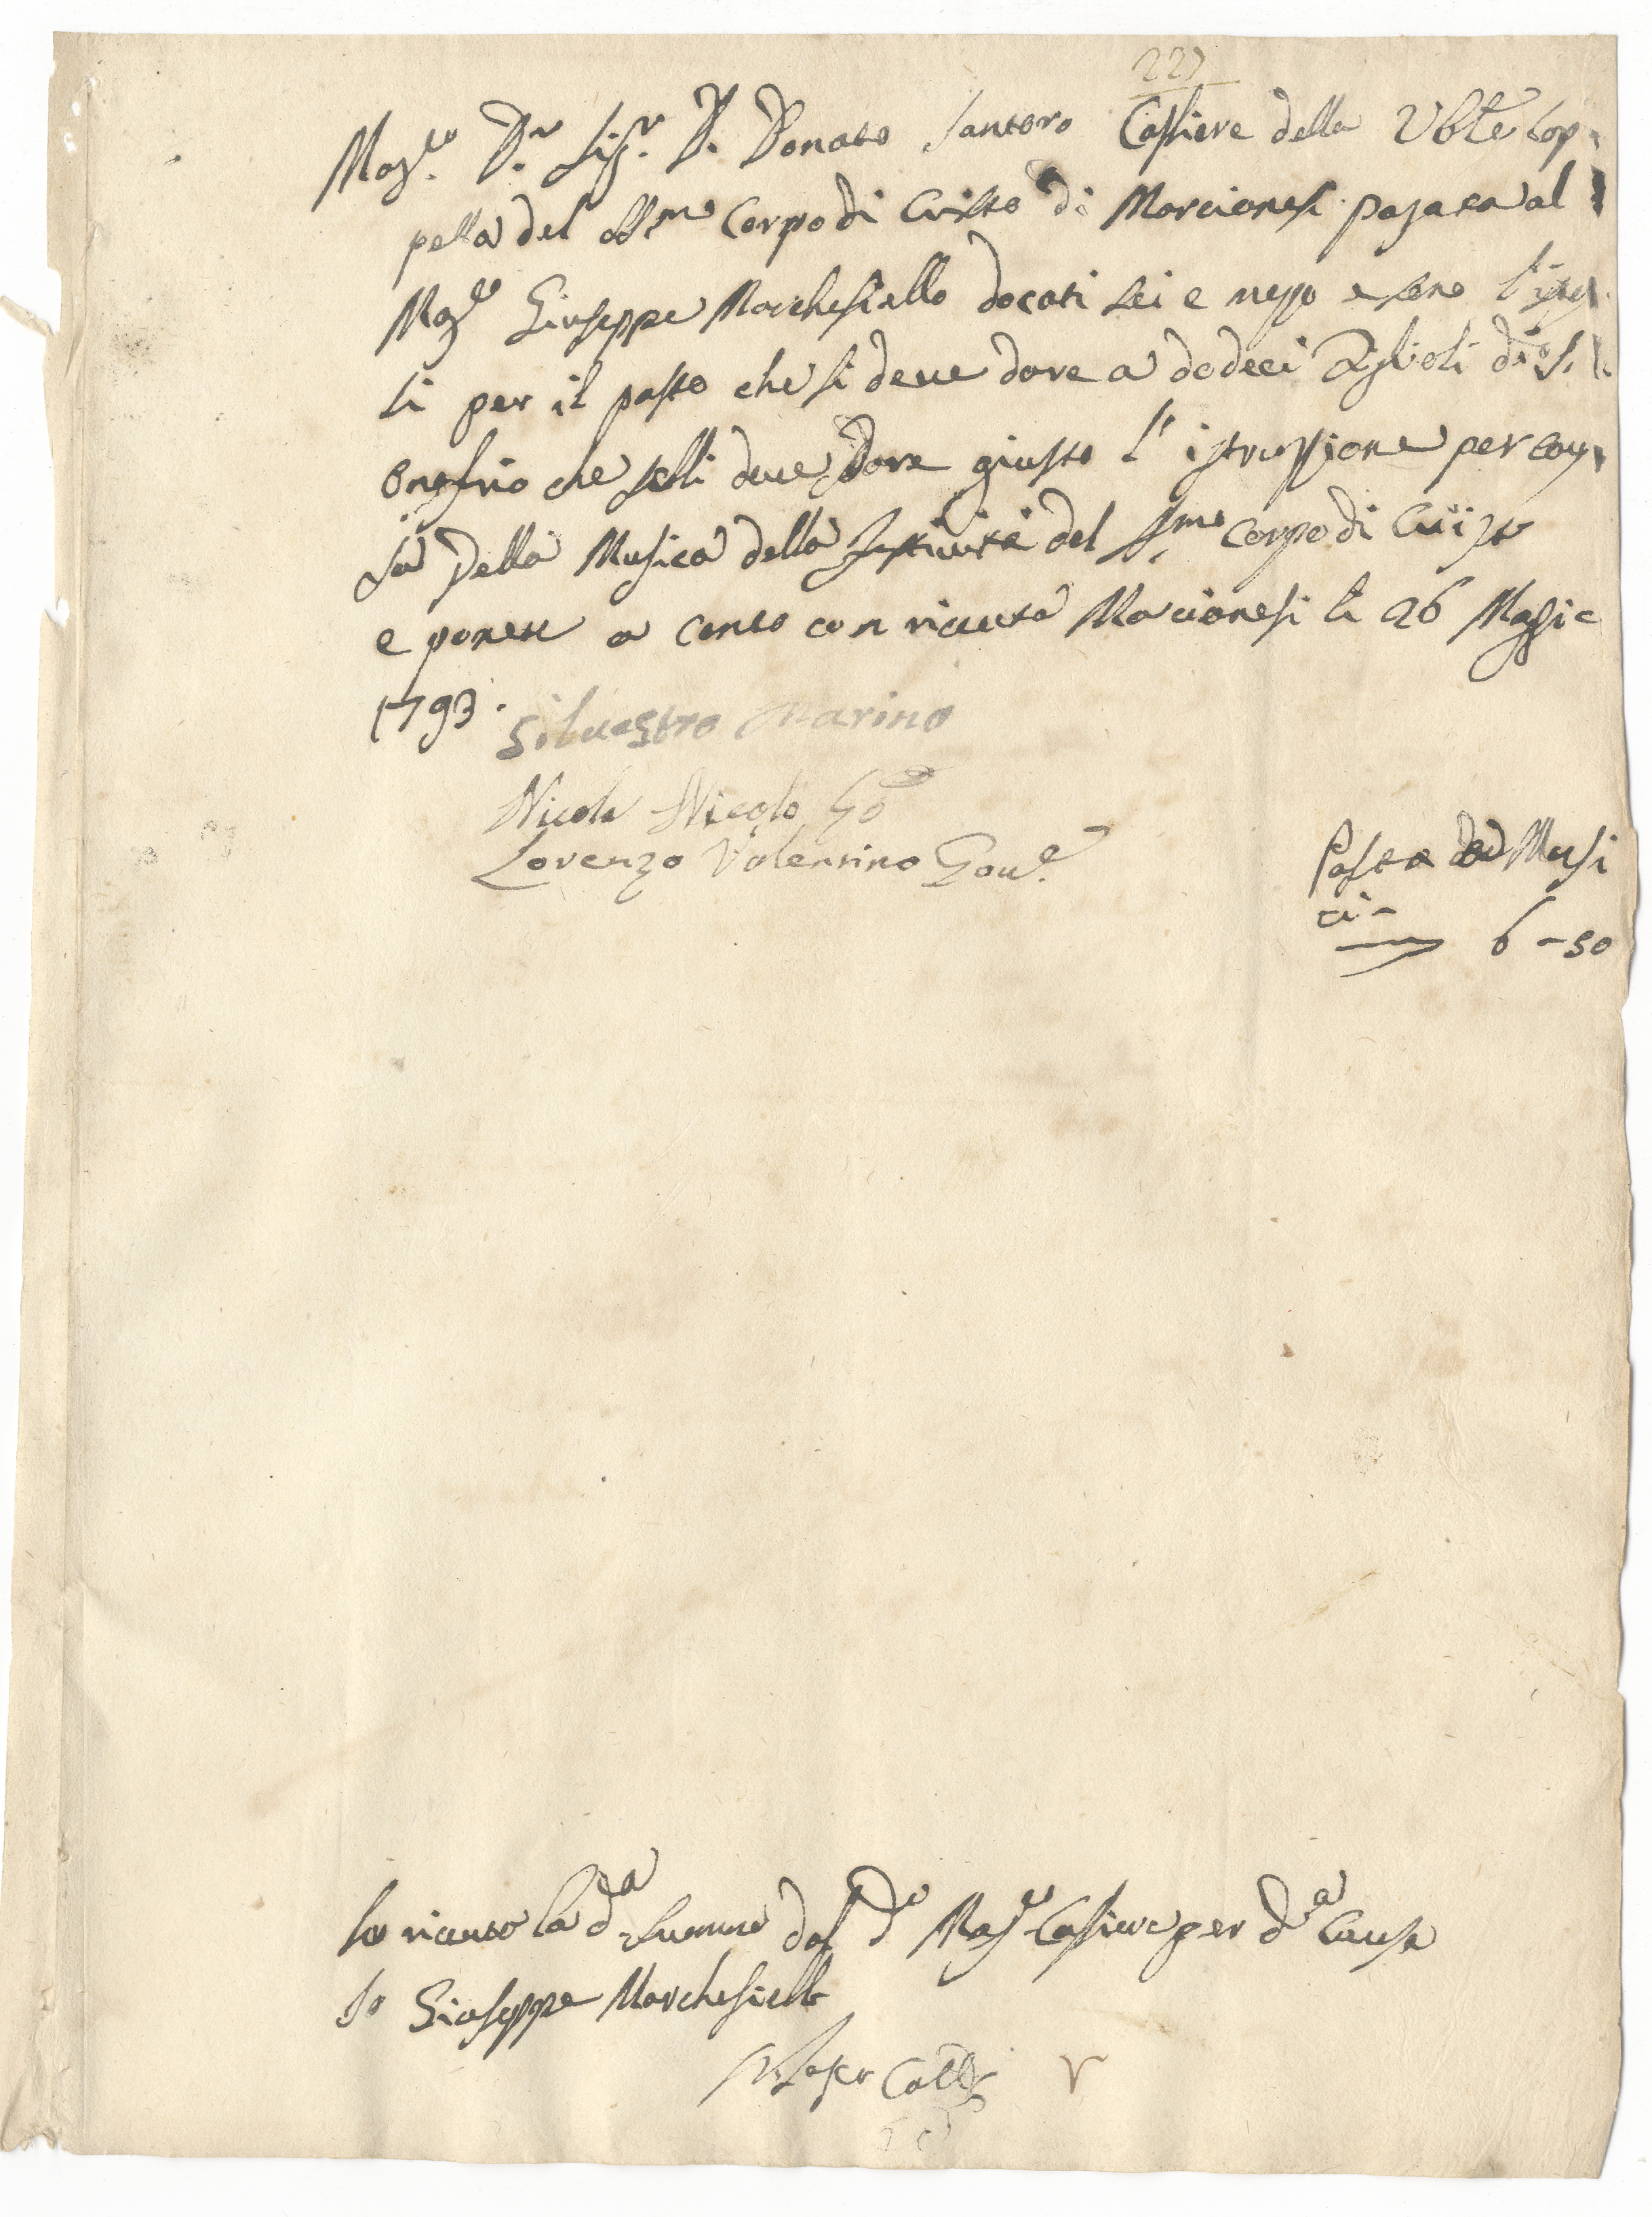 227
Mag.co D.r Sig.r D. Donato Santoro Cassiere della Vble Cap
pella del SSmo Corpo di Cristo di Marcianesi pagara al
Mag.co Giuseppe Marchesiello docati sei e mezo e sono l'istes
si per il pasto che si deve dare a dodeci Figlioli di S.
Onofrio che selli deve dare giusto l'istruzzione per cau
sa della Musica della Festività del SSmo Corpo di Cristo
e ponete a conto con riceuta Marcianesi li 26 Magio
1793.
Silvestro Marino
Nicola Nicolò Go
Lorenzo Valentino Gov.e
Pasto Musi
ci -
6 - 50
Ho riceuto la d.a summa dal d.o Mag.co Cassiere per d.a causa
Io Giuseppe Marchesiello